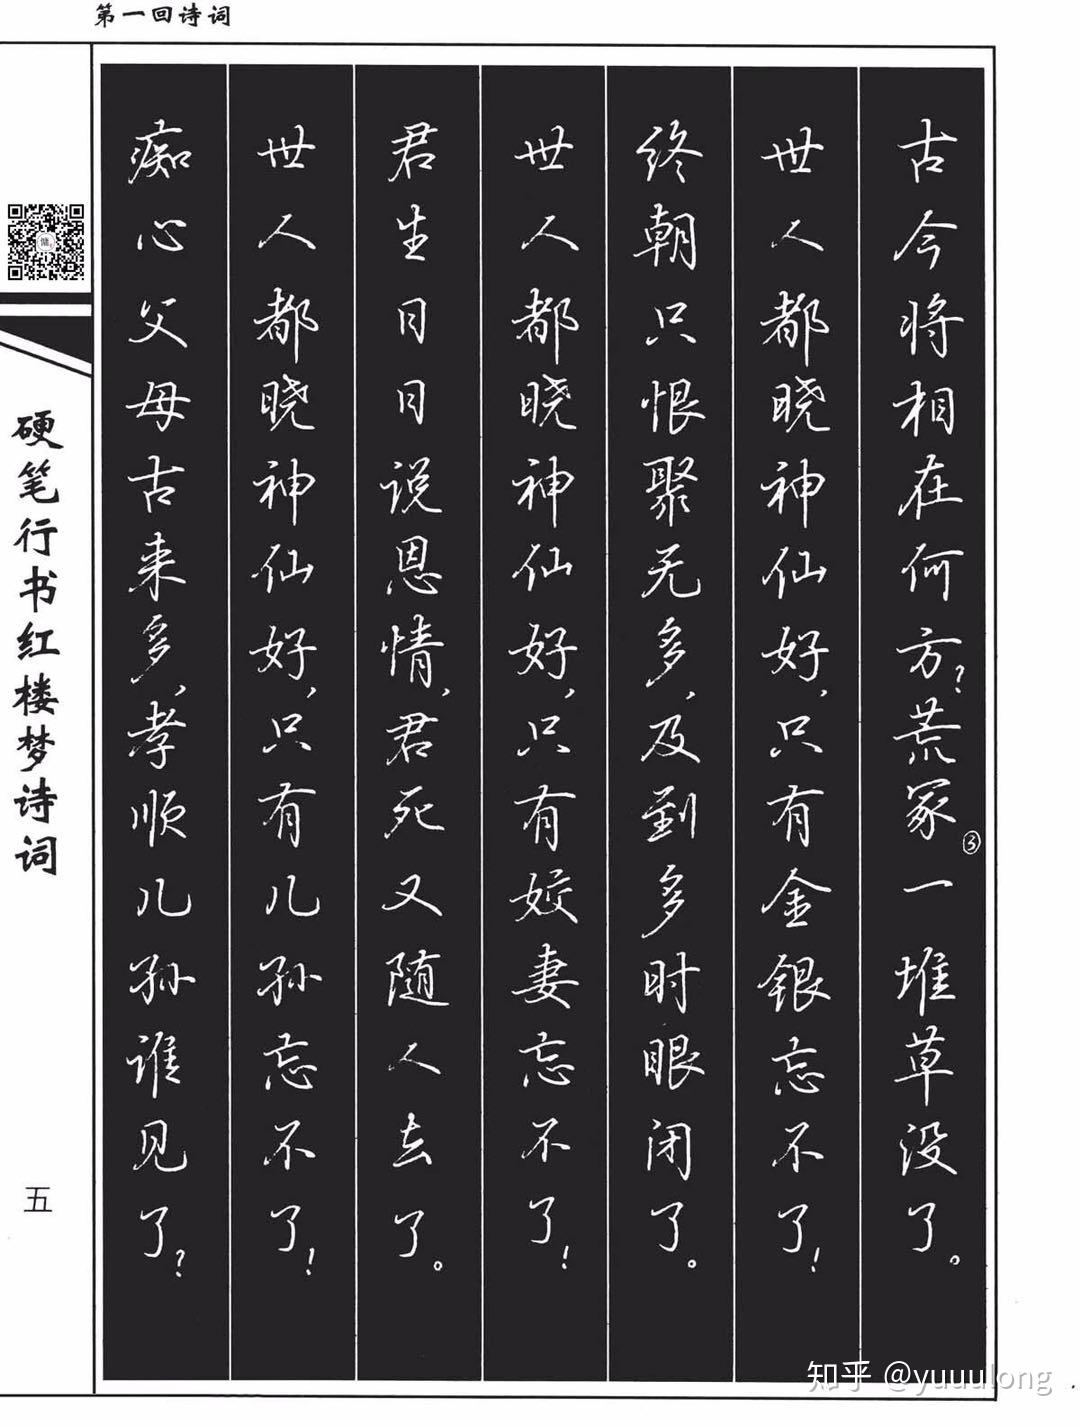 第一回诗词
古今将相在何方？荒冢③一堆草没了。
世人都晓神仙好，只有金银忘不了！
终朝只恨聚无多，及到多时眼闭了。
世人都晓神仙好，只有姣妻忘不了！
君生日日说恩情，君死又随人去了。
世人都晓神仙好，只有儿孙忘不了！
痴心父母古来多，孝顺儿孙谁见了？
硬笔行书红楼梦诗词
五
知乎 @yuuulong